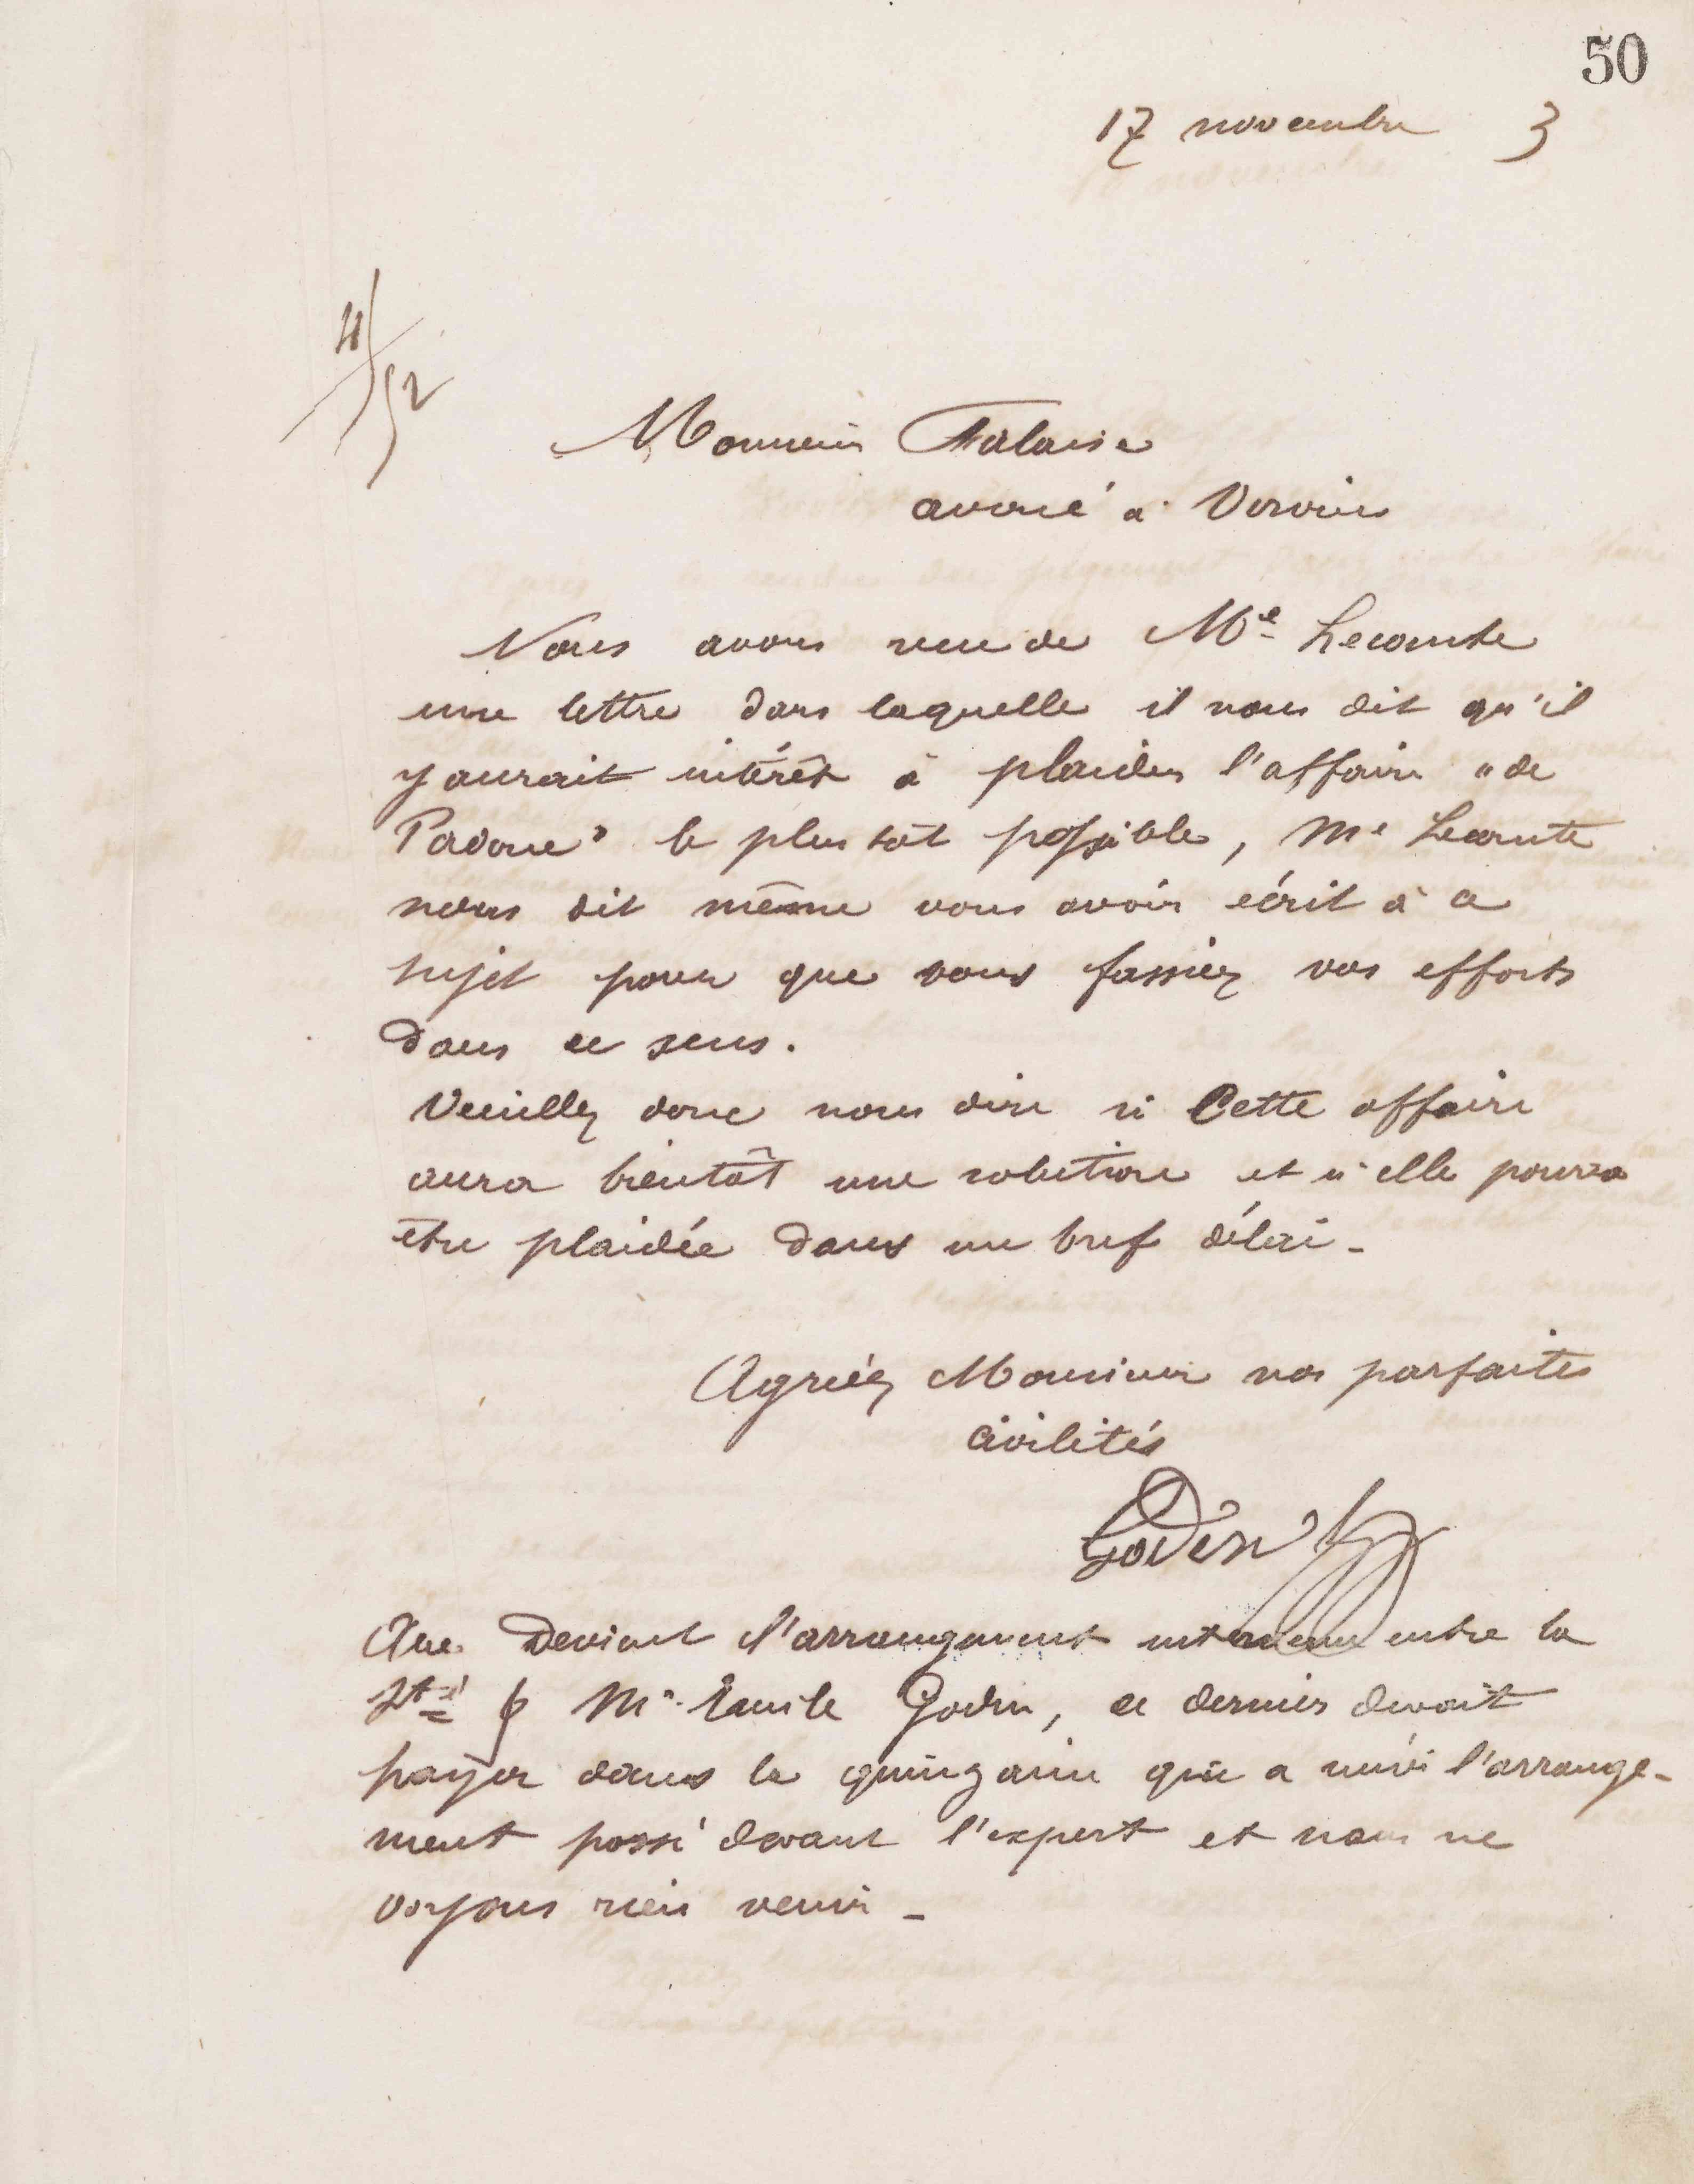 50
17 novembre 3
41
52
Monsieur Falaise
avoué à Vervins
Nous avons reçu de Me Lecomte
une lettre dans laquelle il nous dit qu'il
y aurait intérêt à plaider l'affaire "de
Padoue" le plus tôt possible, Me Lecomte
nous dit même vous avoir écrit à ce
sujet pour que vous fassiez vos efforts
dans ce sens.
Veuillez donc nous dire si Cette affaire
aura bientôt une solution et si elle pourra
être plaidée dans un bref délai -
Agréez Monsieur nos parfaites
civilités
Godin
Que Devient l'arrangement intervenu entre la
Sté & Mr. Emile Godin, ce dernier devait
payer dans la quinzaine qui a suivi l'arrange-
ment passé devant l'expert et nous ne
voyons rien venir -